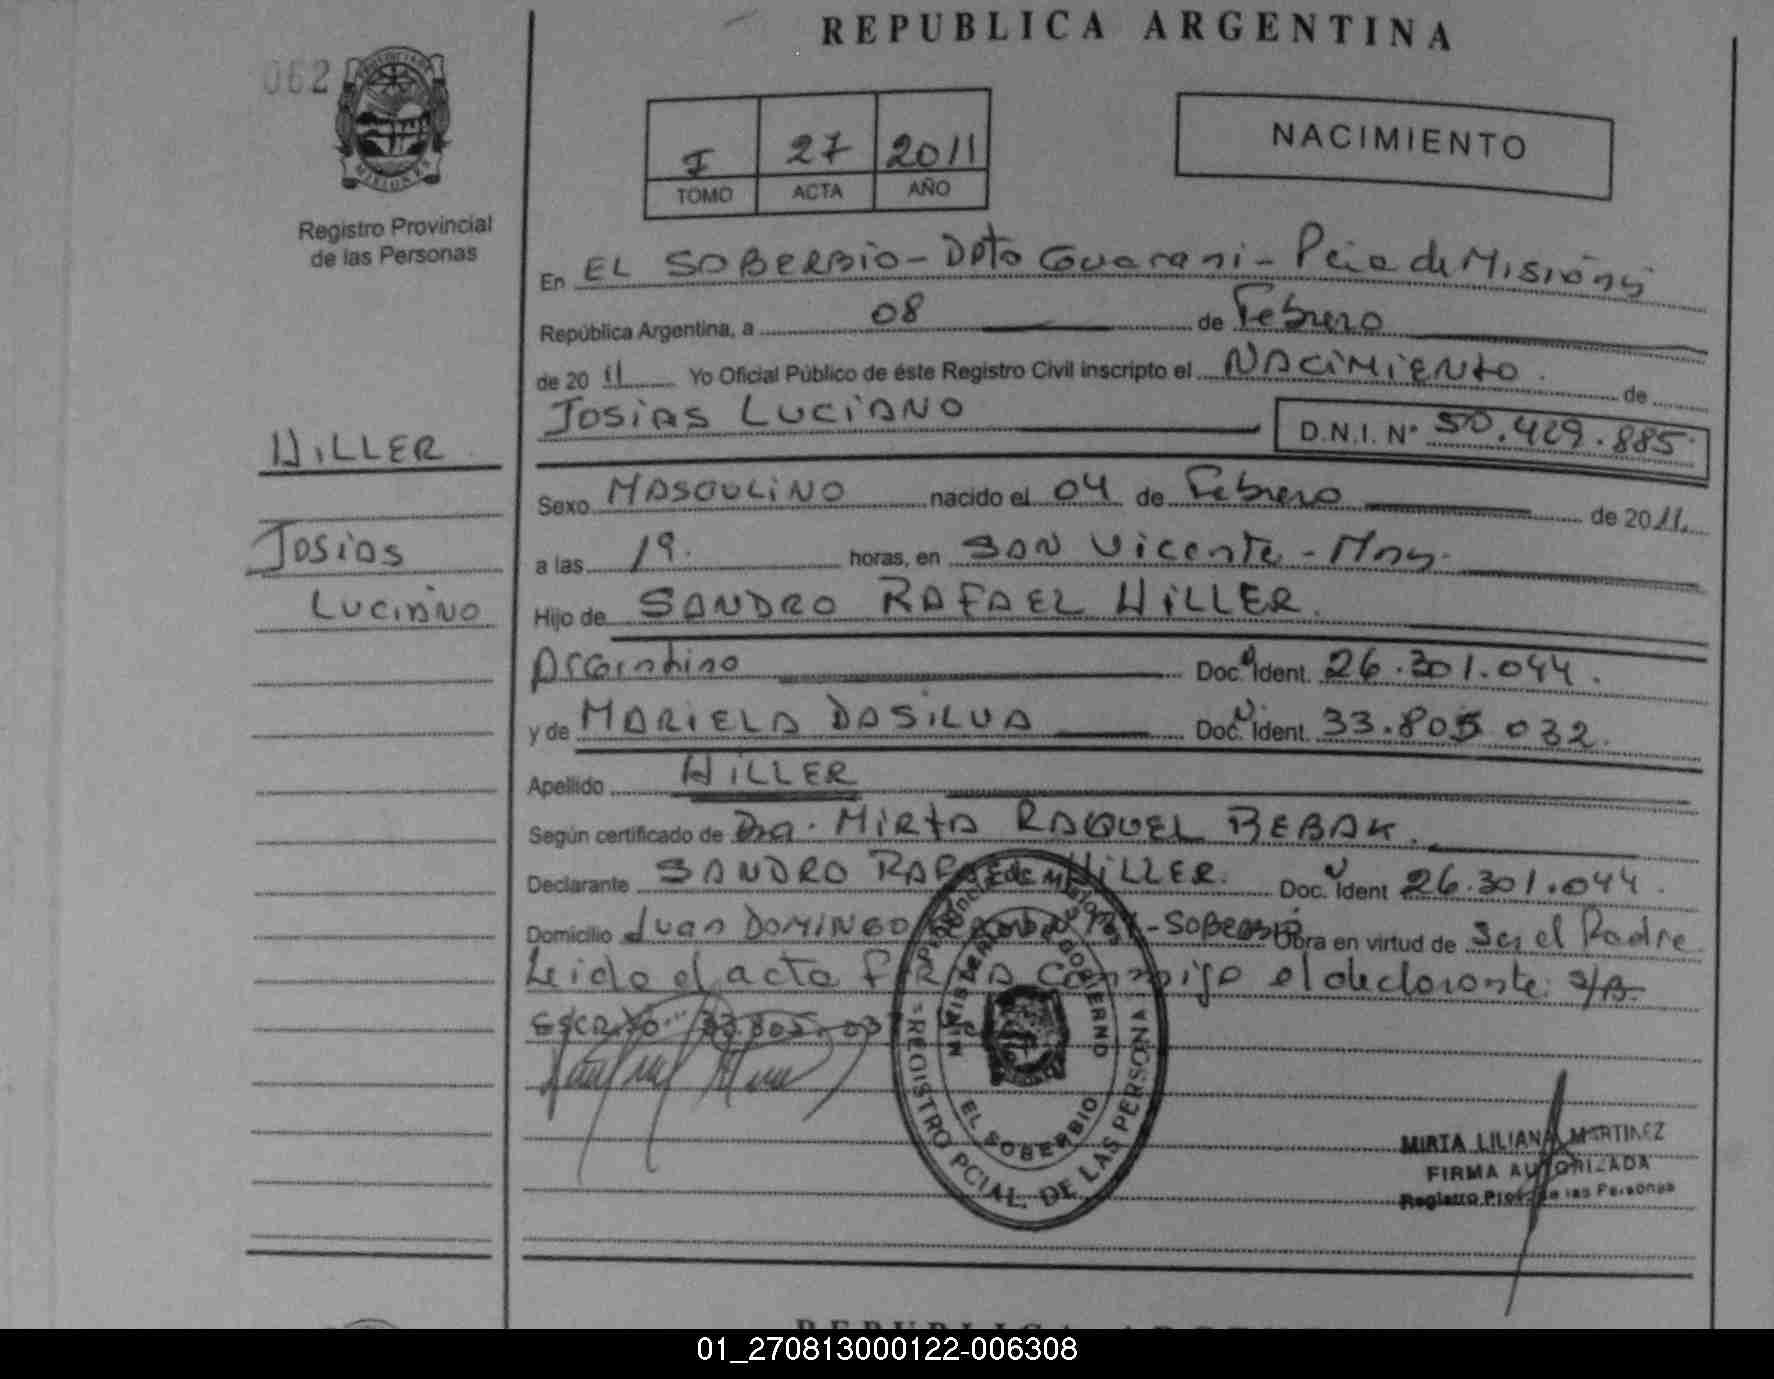 REPUBLICA ARGENTINA
062
PROVINCIA DE MISIONES
Registro Provincial
de las Personas
I 27 2011
TOMO ACTA AÑO
NACIMIENTO
En EL SOBERBIO - Dpto Guarani - Pcia de Misiones
República Argentina, a 08 de Febrero
de 20 11 Yo Oficial Público de éste Registro Civil inscripto el NACIMIENTO. de
JOSIAS LUCIANO D.N.I. Nº 50.429.885
HILLER
JOSIAS
LUCIANO
Sexo MASCULINO nacido el 04 de Febrero de 2011.
a las 19. horas, en SAN Vicente - Mns.
Hijo de SANDRO RAFAEL HILLER.
Argentino Doc. N Ident. 26.301.044.
y de MARIELA DASILVA Doc. N Ident. 33.805 032.
Apellido HILLER
Según certificado de Dra. MIRTA RAQUEL BEBAK.
Declarante SANDRO RAFAEL HILLER. Doc. N Ident 26.301.044.
Domicilio Juan DOMINGO - SOBERBIO Obra en virtud de Ser el Padre
Leido el acta FIRMA conmigo el declarante. S/B-
ESCRITO "33.805.03
Provincia de Misiones
MINISTERIO DE GOBIERNO
EL SOBERBIO
REGISTRO PCIAL. DE LAS PERSONAS
MIRTA LILIANA MARTINEZ
FIRMA AUTORIZADA
Registro Prov. de las Personas
REPUBLICA ARGENTINA
01_270813000122-006308